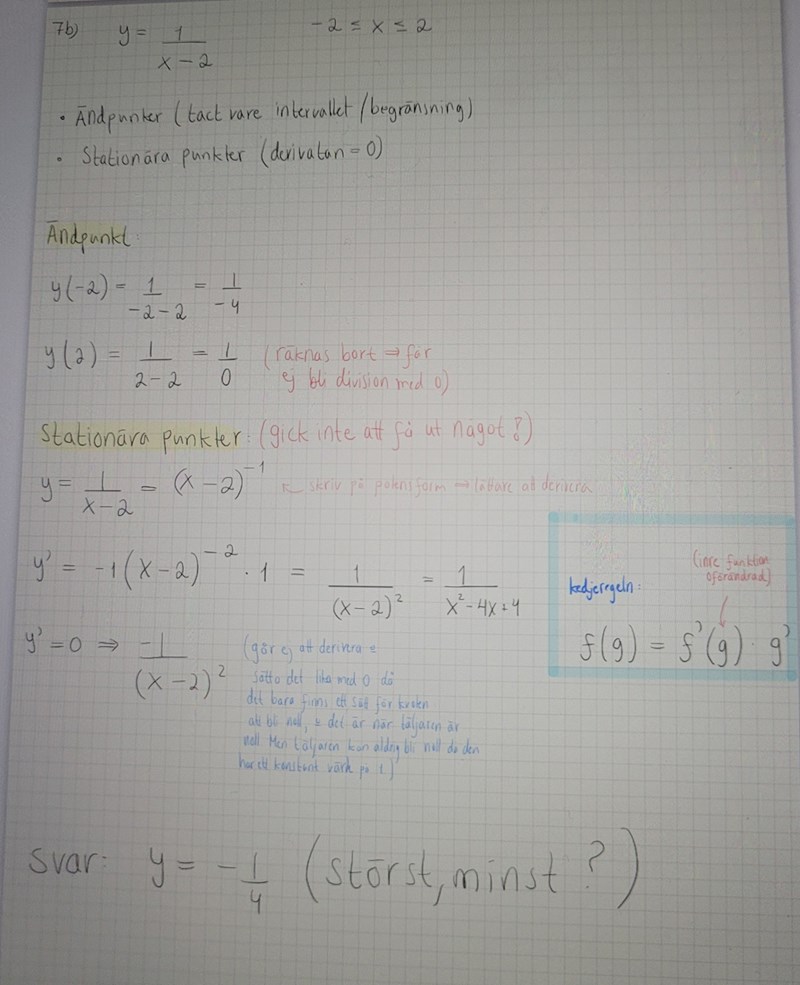 7b) y = 1/(x-2) -2 ≤ x ≤ 2
• Ändpunker (tact vare intervallet/begränsning)
• Stationära punkter (derivatan = 0)
Ändpunkt:
y(-2) = 1/(-2-2) = 1/-4
y(2) = 1/(2-2) = 1/0 (räknas bort ⇒ för
ej bli division med 0)
Stationära punkter: (gick inte att få ut något?)
y = 1/(x-2) = (x-2)^-1 ← skriv på potensform ⇒ lättare at derivera
y' = -1(x-2)^-2 · 1 = 1/(x-2)^2 = 1/(x^2-4x+4)
y' = 0 ⇒ -1/(x-2)^2
(går ej att derivera &
sätta det lika med 0 då
det bara finns ett sätt för kvoten
att bli noll, & det är när täljaren är
noll Men täljaren kan aldrig bli noll då den
har ett konstant värde på 1)
(inre funktion
oförändrad)
kedjeregeln:
f(g) = f'(g) · g'
svar: y = -1/4 (störst, minst?)